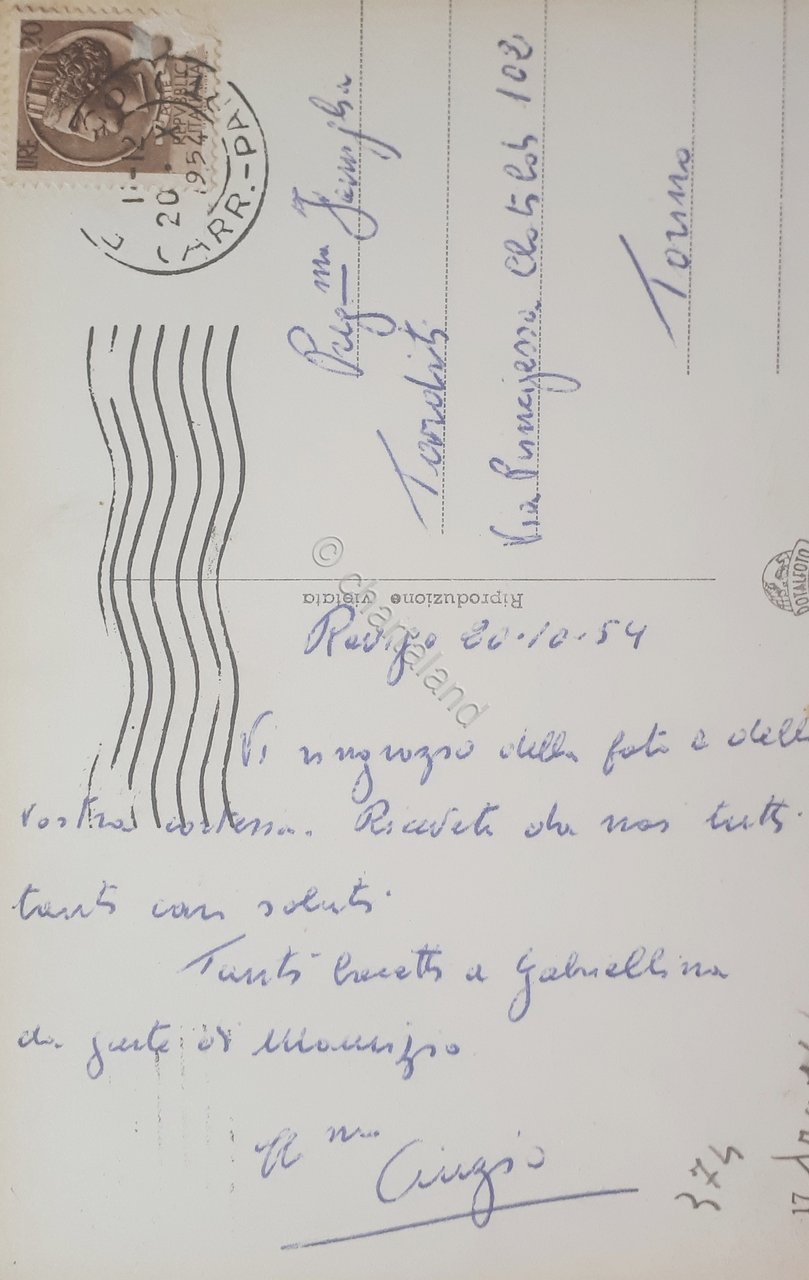 LIRE 20
REPVBBLICA
ITALIANA
11-12
20. X
1954
ARR.-PA
Preg.ma Famiglia
Tarditi
Via Principessa Clotilde 102
Torino
Riproduzione vietata
© chartaland
ROTALFOTO
Rovigo 20-10-54
Vi ringrazio della foto e della
vostra cortesia. Ricevete da noi tutti
tanti cari saluti.
Tanti bacetti a Gabriellina
da parte di Maurizio
Cinzio
374
17